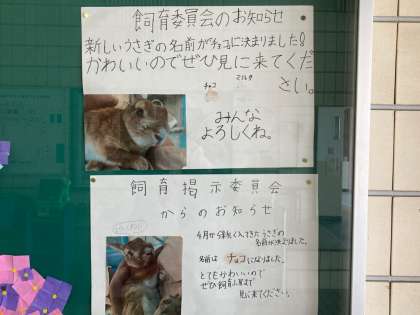 飼育委員会のお知らせ
新しいうさぎの名前がチョコに決まりました!
かわいいのでぜひ見に来てくだ
さい。
チョコ
ミルク
みんな
よろしくね。
飼育掲示委員会
からのお知らせ
名前が決まりました。
名前は チョコになりました。
とてもかわいいので
ぜひ飼育小屋まで
見に来てください。